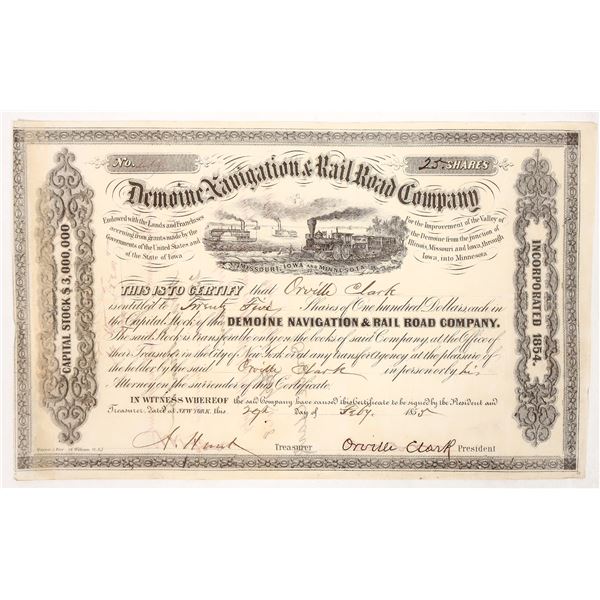 No.
25 SHARES
Demoine Navigation & Rail Road Company
Endowed with the Lands and Franchises
accruing from grants made by the
Governments of the United States and
of the State of Iowa
For the Improvement of the Valley of
the Demoine from the junction of
Illinois, Missouri and Iowa, through
Iowa, into Minnesota.
MISSOURI, IOWA AND MINNESOTA
CAPITAL STOCK $ 3,000,000
INCORPORATED 1854.
THIS IS TO CERTIFY that Orville Clark
is entitled to Twenty Five Shares of One hundred Dollars each in
the Capital Stock of the DEMOINE NAVIGATION & RAIL ROAD COMPANY.
The said Stock is transferable only on the books of said Company, at the Office of
their Treasurer in the City of New York or at any transfer Agency at the pleasure of
the holder by the said Orville Clark in person or by his
Attorney on the surrender of this Certificate.
IN WITNESS WHEREOF the said Company have caused this Certificate to be signed by the President and
Treasurer. Dated at NEW YORK, this day of Feby. 1855
Treasurer Orville Clark President